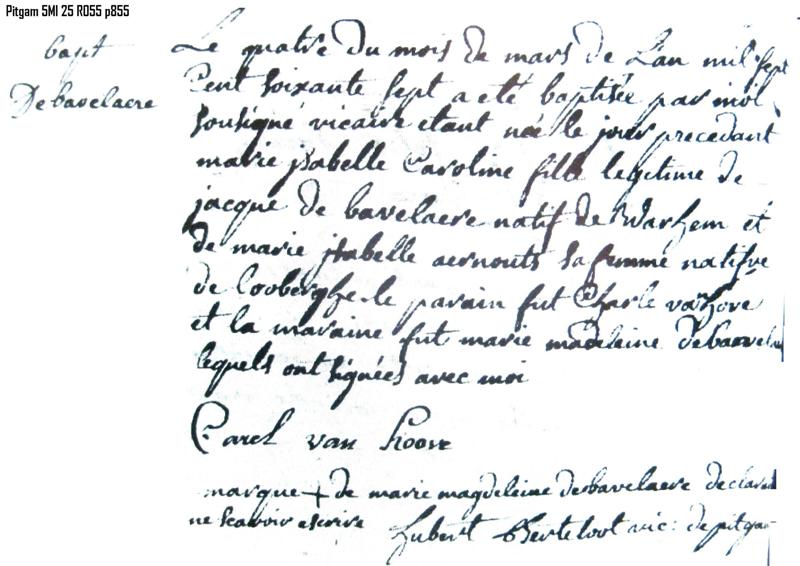 Pitgam 5MI 25 R055 p855
bapt
De bavelaere
Le quatre du mois de mars de L'an mil sept
Cent soixante sept a eté baptisée par moi
sousigné vicaire etant née le jour precedant
marie jsabelle Caroline fille legitime de
jacque de bavelaere natif de Warhem et
de marie jsabelle aernouts sa femme natifve
de looberghe. le parain fut Charle vanhove
et la maraine fut marie madeleine debavela
lequels ont signées avec moi
Carel van hoove
marque + de marie magdeleine debavelaere declarant
ne scavoir escrire hubert Berteloot vic: de pitgam